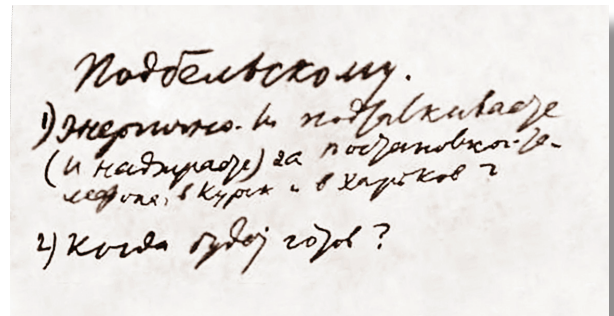 Подбельскому.
1) Энергично ли подталкиваете
(и надзираете) за постановкой те-
лефона в Курск и в Харьков?
2) Когда будет готов?